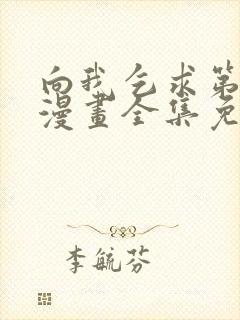 向我乞求第
漫畫全集免
李毓芬